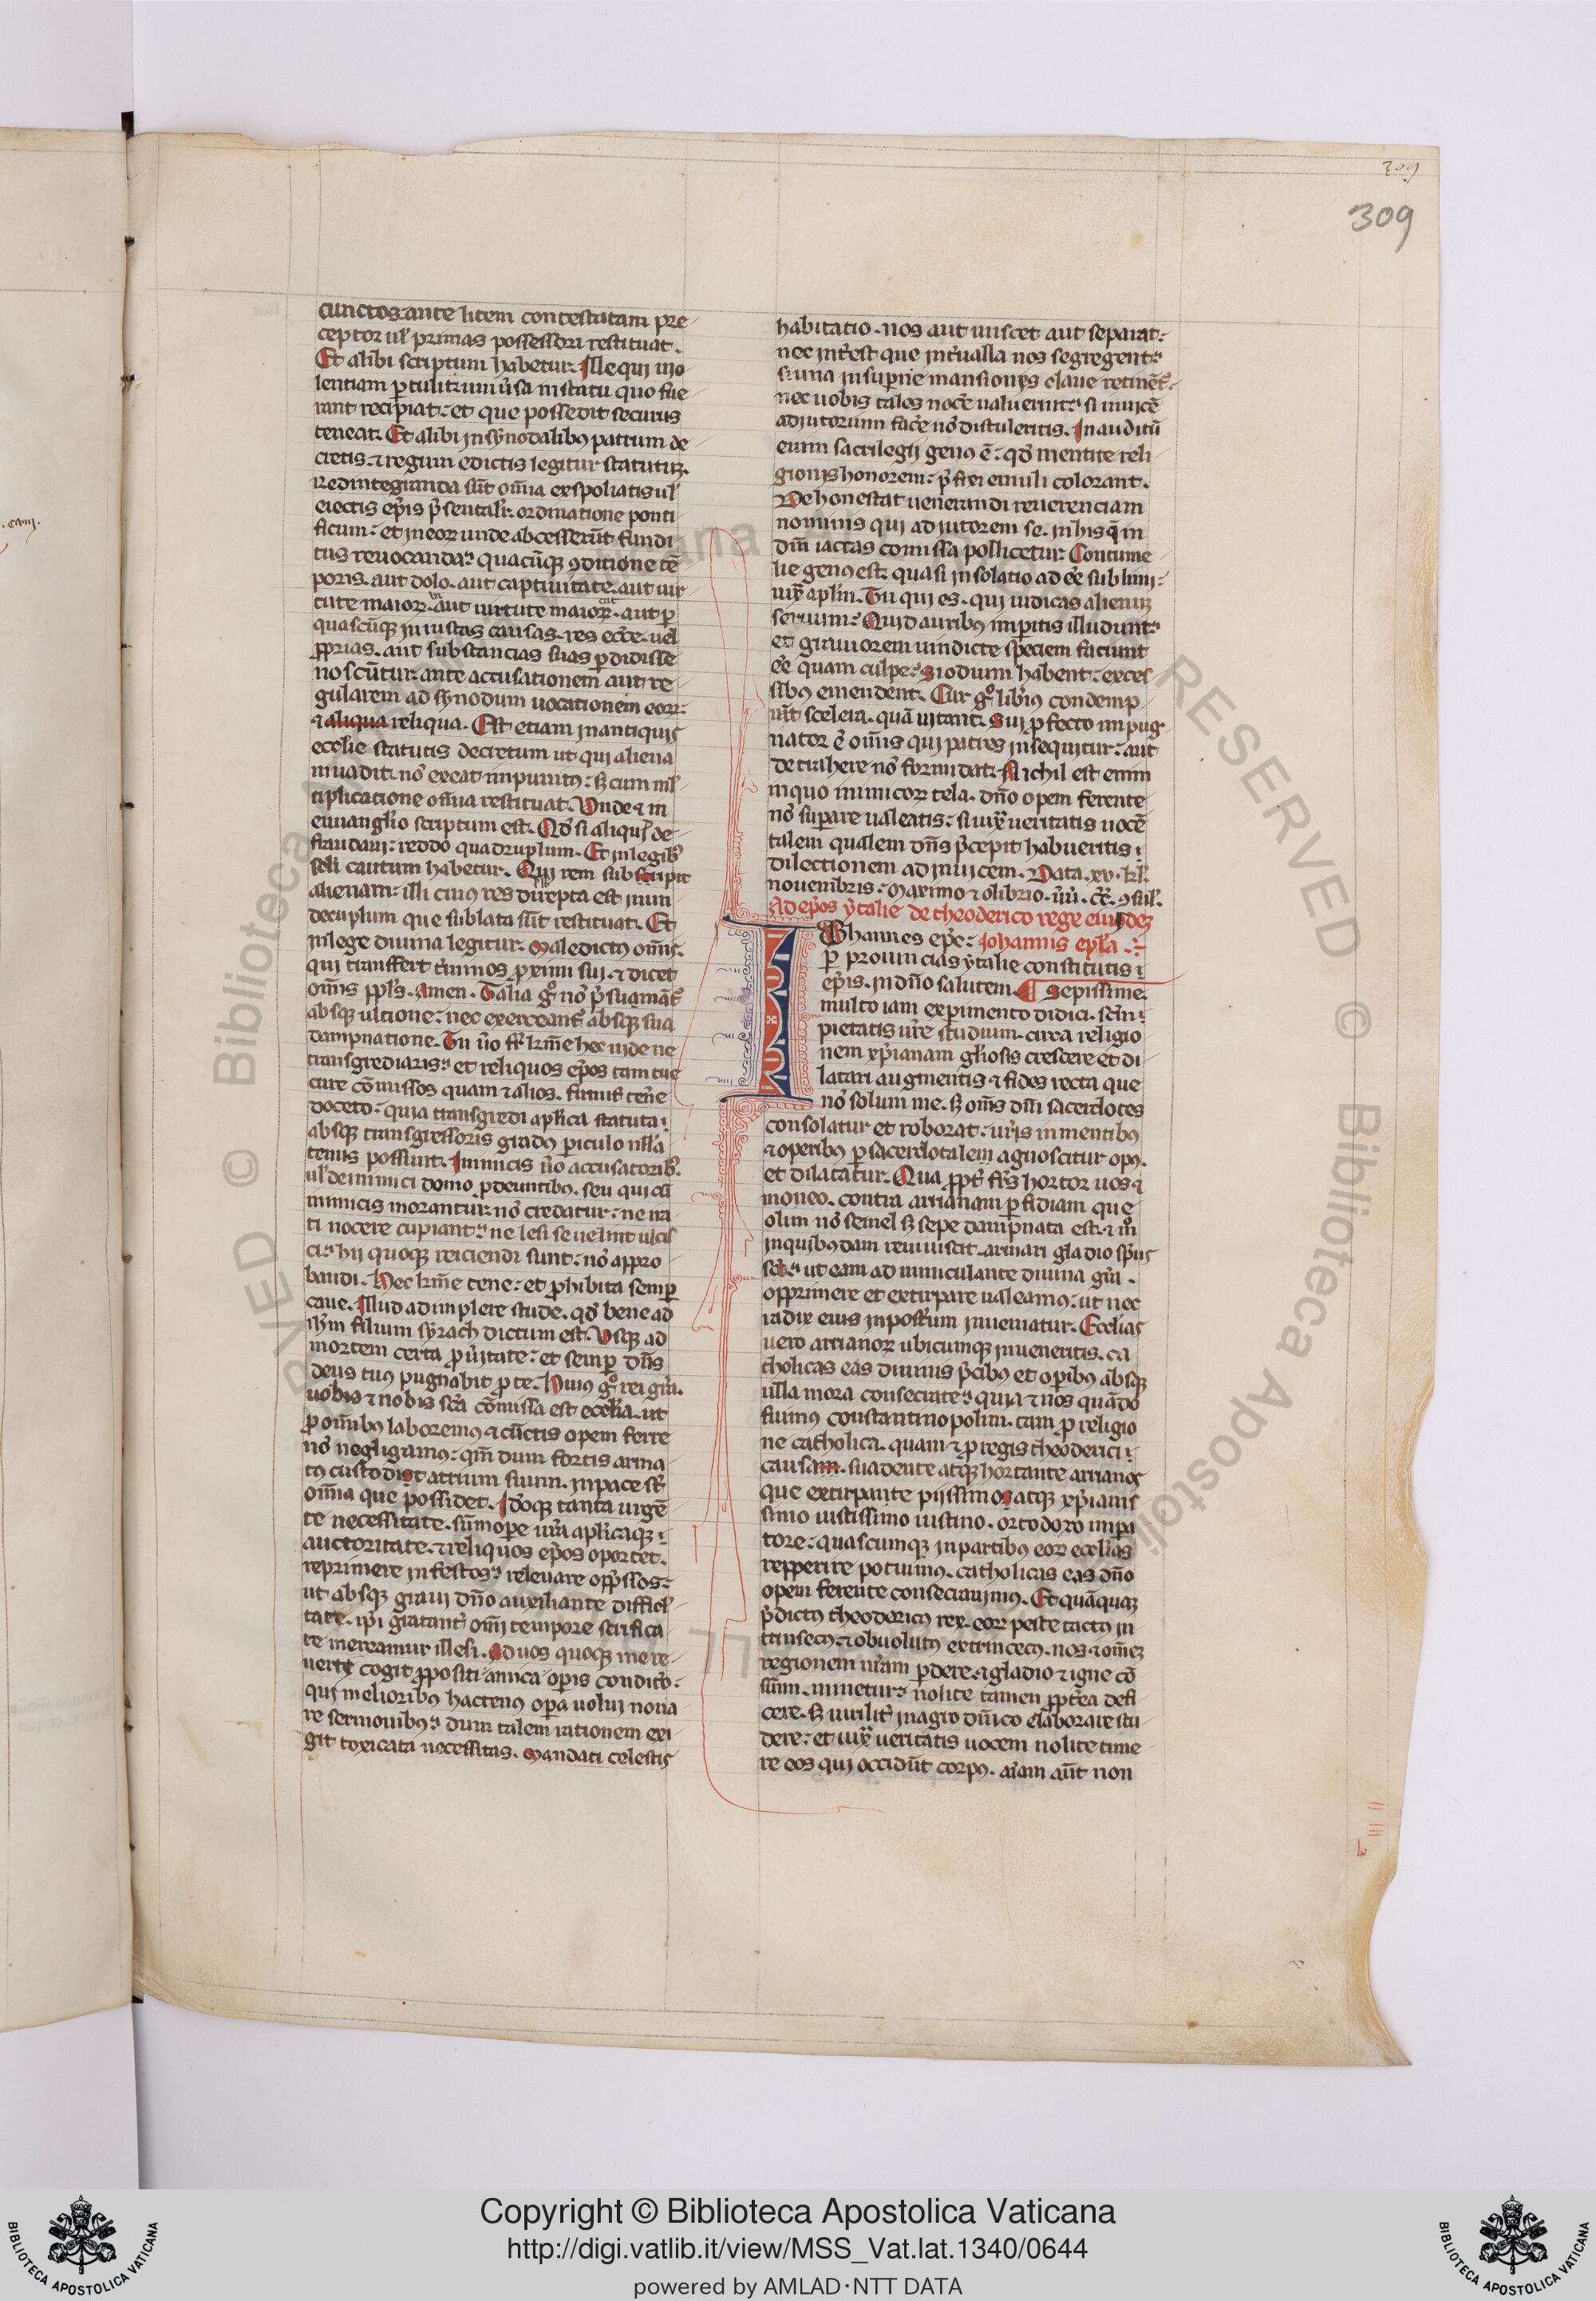 309
309
cunctos. ante litem contestatam pre
ceptor ul' primas possessori restituat.
Et alibi scriptum habetur. Ille qui vio
lentiam pertulit unu'sa in statu quo fue
rant recipiat: et que possedit securus
teneat. Et alibi in synodalibus patrum de
cretis. et regum edictis legitur statutum.
Redintegranda sunt omnia exspoliatis ul'
eiectis episcopis presentaliter ordinatione ponti
ficum: et in eorum unde abcesserunt fundi
tus reuocanda: quacumque conditione tem
poris. aut dolo. aut captiuitate. aut uir
tute maiorum. aut uirtute maiorum. aut per
quascumque iniustas causas. res ecclesie. uel
proprias. aut substancias suas perdidisse
noscuntur. ante accusationem aut re
gularem ad synodum uocationem eorum:
et aliqua reliqua. Est etiam in antiquis
ecclesie statutis decretum ut qui aliena
inuadit. non exeat impunitus: sed cum mul
tiplicatione omnia restituat. Unde et in
euuanglio scriptum est. Quod si aliquid de
fraudaui: reddo quadruplum. Et in legibus
seculi cautum habetur. Qui rem subripit
alienam: illi cuius res dirrepta est in un
decuplum que sublata sunt restituat. Et
in lege diuina legitur. Maledictus omnis.
qui transfert terminos proximi sui. et dicet
omnis populus. Amen. Talia ergo non presumant
absque ultione: nec exerceant absque sua
dampnatione. Tu uero frater karissime hec uide ne
transgrediaris: et reliquos episcopos tam tue
cure commissos quam et alios. firmiter tenere
doceto: quia transgredi apostolica statuta
absque transgressoris gradus periculo nulla
tenus possunt. Inimicis uero accusatoribus.
ul' de inimici domo prodeuntibus. seu qui cum
inimicis morantur non credatur: ne ira
ti nocere cupiant: ne lesi se uelint ulcis
ci: hii quoque reiciendi sunt: non appro
bandi. Hec karissime tene: et prohibita semper
caue. Illud adimplere stude. quod bene ad
ihesum filium syrach dictum est. Usque ad
mortem certa pro ueritate: et semper dominus
deus tuus pugnabit pro te. Huius ergo rei gratia.
uobis et nobis sancta commissa est ecclesia. ut
pro omnibus laboremus et cunctis opem ferre
non negligamus: quoniam dum fortis arma
tus custodit atrium suum. in pace sunt
omnia que possidet. Ideoque tanta urgen
te necessitate. summopere uestra apostolicaque
auctoritate. et reliquos episcopos oportet.
reprimere infestos: releuare oppressos:
ut absque graui domino auxiliante difficul
tate. ipsi gratanter omni tempore sacrifica
re mereamur illesi. Ad uos quoque me re
uerti cogit propositi amica operis conditio:
qui melioribus hactenus opera uolui noua
re sermonibus: dum talem rationem exi
git toxicata necessitas. Mandati celestis
habitatio. nos aut miscet aut separat:
nec interest que interualla nos segregent:
si una in superne mansionis claue retinent.
nec uobis tales nocere ualuerunt: si inuicem
adiutorium facere non distuleritis. Inauditum
enim sacrilegii genus est: quod mentite reli
gionis honorem: proprii emuli colorant.
Dehonestat uenerandi reuerenciam
nominis qui adiutorem se. in hiis que in
deum iactas comissa pollicetur. Contume
lie genus est. quasi in solatio adesse sublimi:
iuxta apostolum. Tu qui es. qui iudicas alienum
seruum: Quid auribus imperitis illudunt:
et grauiorem uindicte speciem faciunt
esse quam culpe: Si odium habent. exces
sibus emendent. Cur ergo liberius condemp
nunt scelera. quam uitant. Sui profecto impug
nator est omnis qui patres insequitur: aut
detrahere non formidat. Nichil est enim
in quo inimicorum tela. domino opem ferente
non superare ualeatis: si iuxta ueritatis uocem
talem qualem dominus precepit habueritis
dilectionem ad inuicem. Data. xv. kl.
nouembris. Maximo et olibrio. uu. cc. consul.
Ad episcopos ytalie de theoderico rege eiusdem
Iohannes episcopus: Iohannis epistola
per prouincias ytalie constitutis
episcopis. in domino salutem. Sepissime
multo iam experimento didici. sanctum
pietatis uestre studium. circa religio
nem christianam gloriosis crescere et di
latari augmentis et fides recta que
non solum me. sed omnes domini sacerdotes
consolatur et roborat: uestris in mentibus
et operibus per sacerdotalem agnoscitur opus.
et dilatatur. Qua propter fratres hortor uos et
moneo. contra arrianam perfidiam que
olim non semel sed sepe dampnata est. et modo
in quibusdam reuiuiscit. armari gladio spiritus
sancti: ut eam adminiculante diuina gratia.
opprimere et extirpare ualeamus: ut nec
radix eius in posterum inueniatur. Ecclesias
uero arrianorum ubicumque inueneritis. ca
tholicas eas diuinis precibus et operibus absque
ulla mora consecrate: quia et nos quando
fuimus constantinopolim. tam pro religio
ne catholica. quam et pro regis theoderici
causam. suadente atque hortante arrianos
que extirpante piissimo atque christianis
simo iustissimo iustino. ortodoxo impera
tore: quascumque in partibus eorum ecclesias
repperire potuimus. catholicas eas domino
opem ferente consecrauimus. Et quamquam
predictus theodoricus rex. eorum peste tactus in
trinsecus. et obuolutus extrinsecus. nos et omnem
regionem nostram perdere. et gladio et igne con
sumi. minetur: nolite tamen propterea defi
cere. Sed uiriliter in agro dominico elaborare stu
dere: et iuxta ueritatis uocem nolite time
re eos qui occidunt corpus. animam autem non
Copyright © Biblioteca Apostolica Vaticana
http://digi.vatlib.it/view/MSS_Vat.lat.1340/0644
powered by AMLAD·NTT DATA